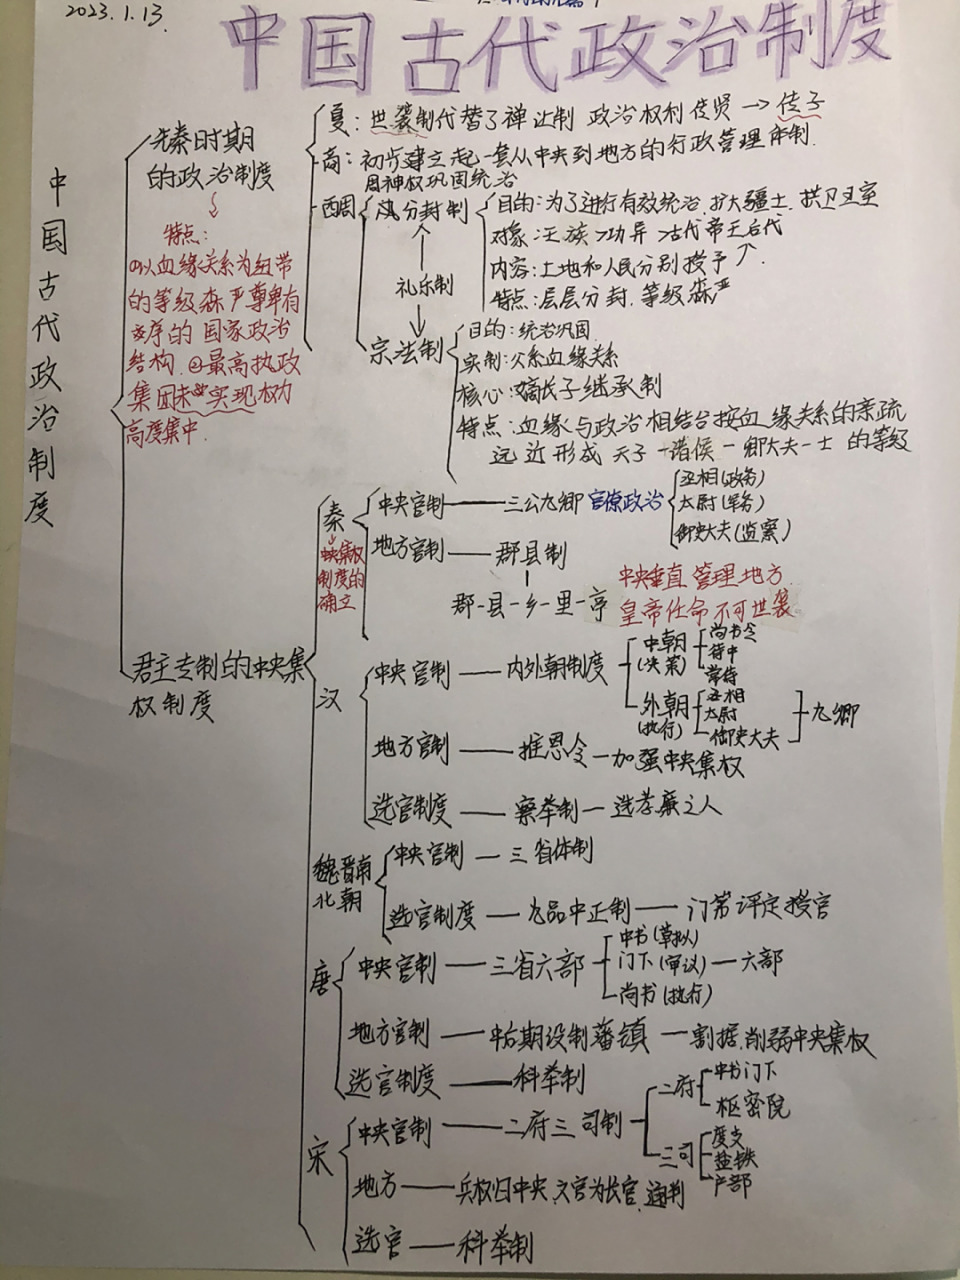 2023.1.13.
中国古代政治制度
中国古代政治制度
先秦时期
的政治制度
特点:
①以血缘关系为纽带
的等级森严尊卑有
序的国家政治
结构.②最高执政
集团未实现权力
高度集中.
夏:世袭制代替了禅让制 政治权利传贤→传子
商:初步建立起一套从中央到地方的行政管理体制.
用神权巩固统治
西周
分封制
目的:为了进行有效统治.扩大疆土.拱卫王室
对象:王族>功异>古代帝王后代
内容:土地和人民分别授予
特点:层层分封.等级森严
礼乐制
宗法制
目的:统治巩固
实制:父系血缘关系
核心:嫡长子继承制
特点:血缘与政治相结合按血缘关系的亲疏
远近形成天子-诸侯-卿大夫-士的等级
君主专制的中央集
权制度
秦
中央集权
制度的
确立
中央官制——三公九卿 官僚政治
丞相(政务)
太尉(军务)
御史大夫(监察)
地方官制——郡县制
郡-县-乡-里-亭
中央垂直管理地方.
皇帝任命不可世袭
汉
中央官制——内外朝制度
中朝
(决策)
尚书令
侍中
常侍
外朝
(执行)
丞相
太尉
御史大夫
九卿
地方官制——推恩令-加强中央集权
选官制度——察举制-选孝廉之人
魏晋南
北朝
中央官制-三省体制
选官制度-九品中正制——门第评定授官
唐
中央官制——三省六部
中书(草拟)
门下(审议)-六部
尚书(执行)
地方官制——中后期设制蕃镇-割据.削弱中央集权
选官制度——科举制
宋
中央官制——二府三司制
二府
中书门下
枢密院
三司
度支
盐铁
户部
地方——兵权归中央.文官为长官.通判
选官——科举制